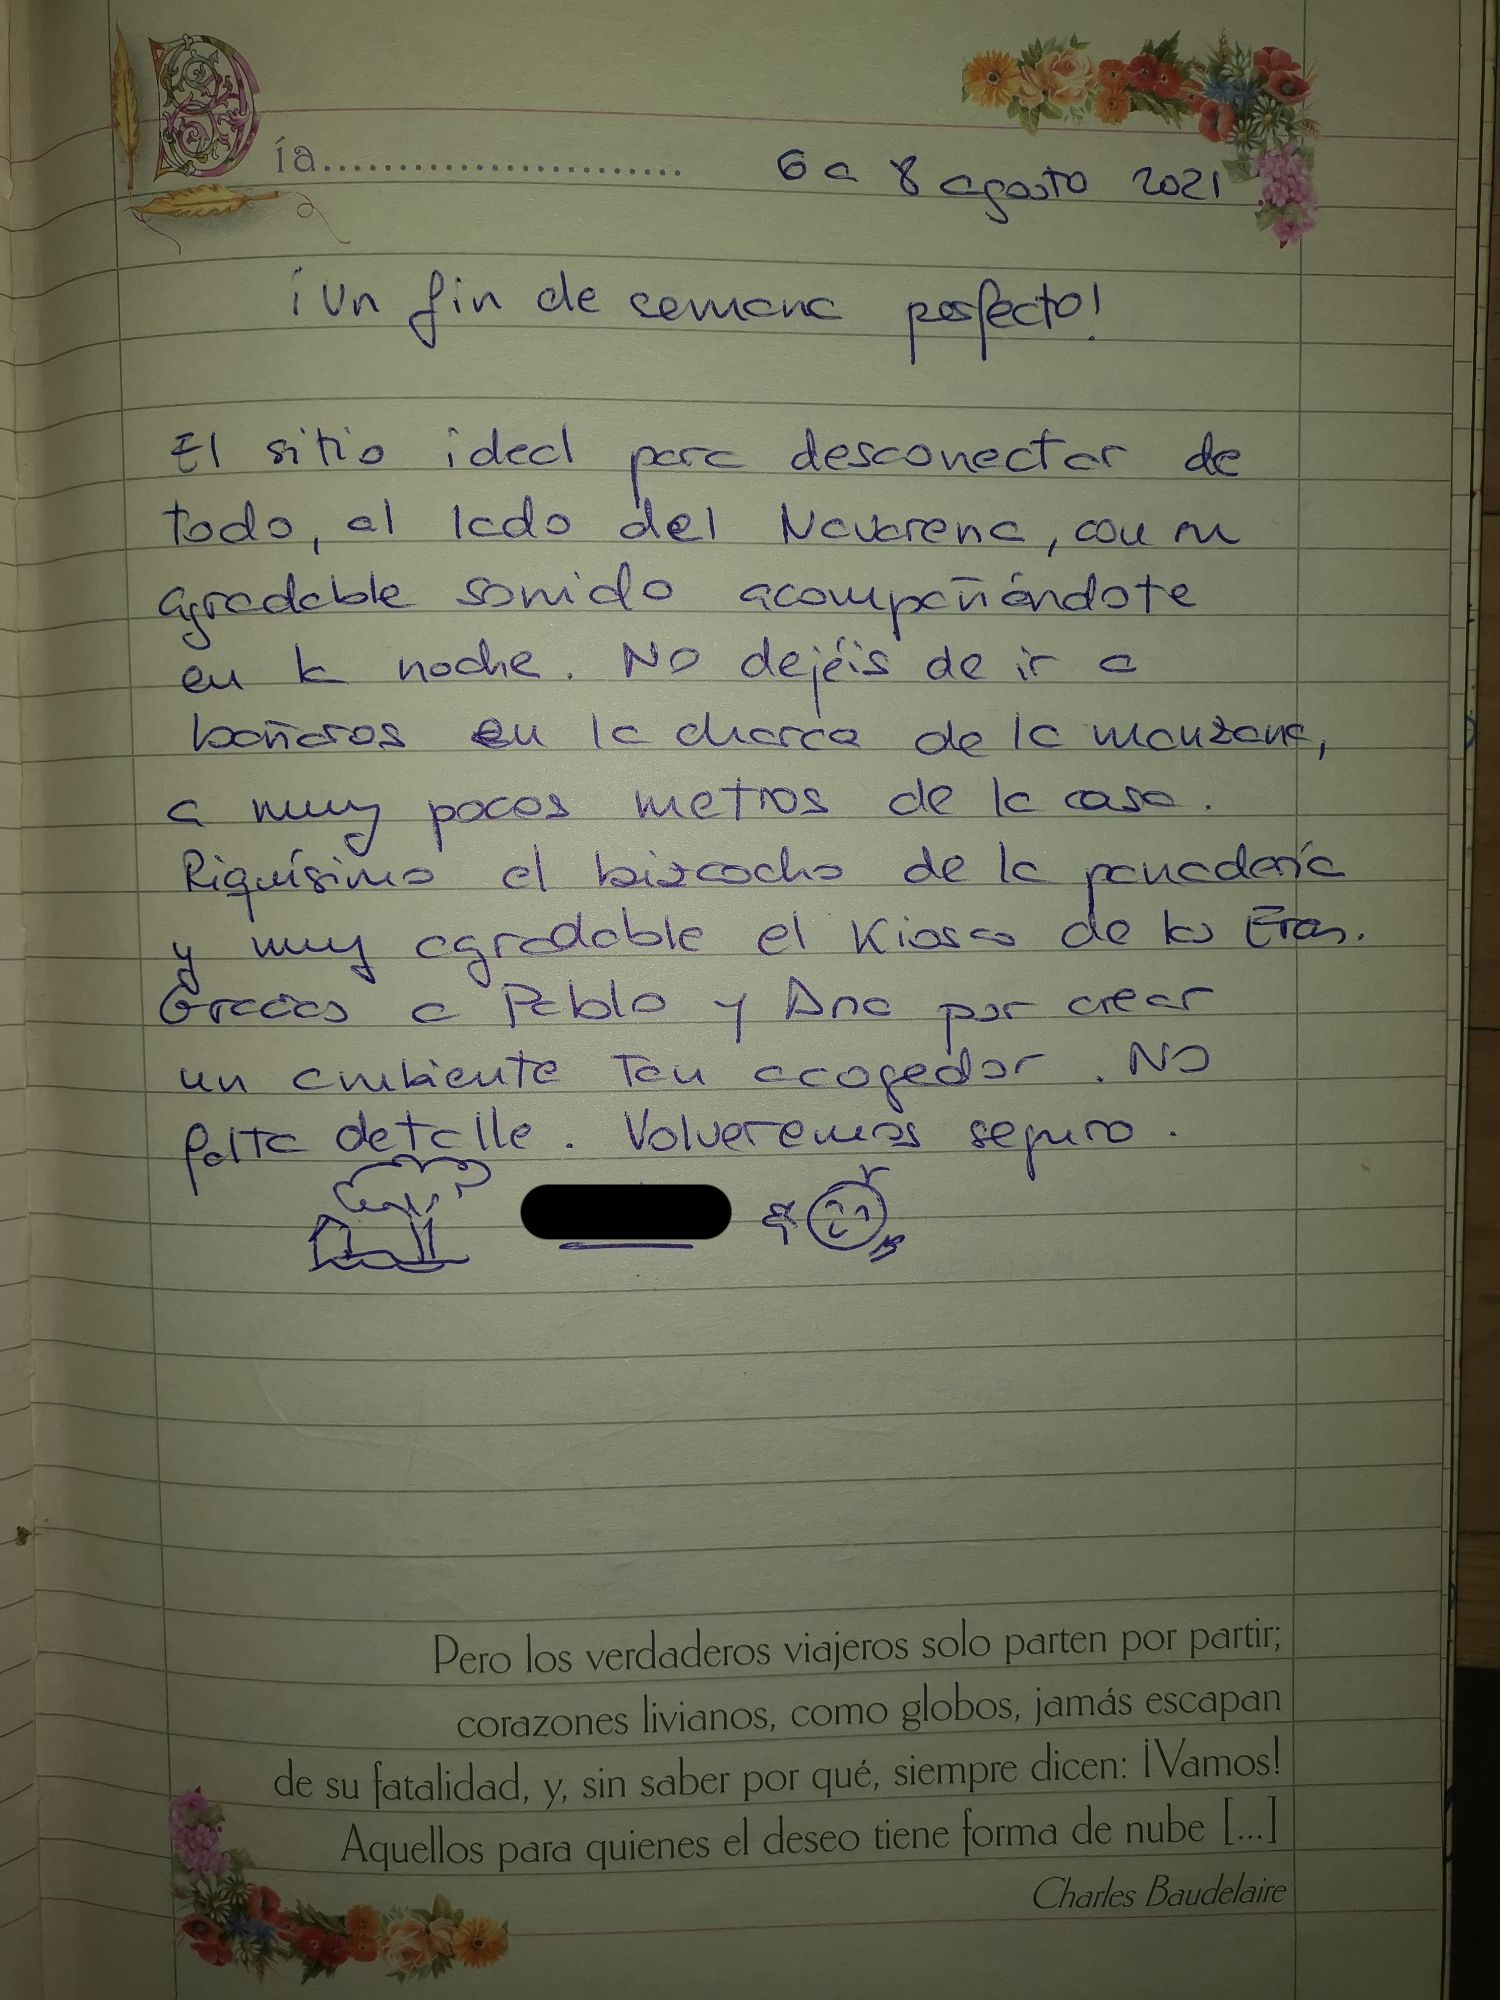 Día........................ 6 a 8 agosto 2021
¡Un fin de semana perfecto!
El sitio ideal para desconectar de
todo, al lado del Navarena, con su
agradable sonido acompañándote
en la noche. No dejéis de ir a
bañaros en la charca de la manzana,
a muy pocos metros de la casa.
Riquísimo el bizcocho de la panadería
y muy agradable el Kiosco de las Eras.
Gracias a Pablo y Ana por crear
un ambiente tan acogedor. No
falta detalle. Volveremos seguro.
Pero los verdaderos viajeros solo parten por partir;
corazones livianos, como globos, jamás escapan
de su fatalidad, y, sin saber por qué, siempre dicen: ¡Vamos!
Aquellos para quienes el deseo tiene forma de nube [...]
Charles Baudelaire